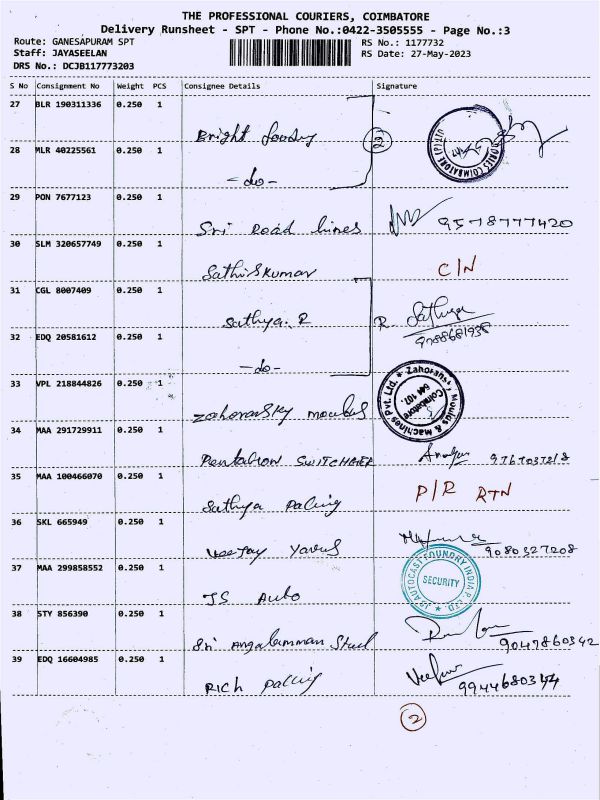 THE PROFESSIONAL COURIERS, COIMBATORE
Delivery Runsheet - SPT - Phone No.:0422-3505555 - Page No.:3
Route: GANESAPURAM SPT
Staff: JAYASEELAN
DRS No.: DCJB117773203
RS No.: 1177732
RS Date: 27-May-2023
S No Consignment No Weight PCS Consignee Details Signature
27 BLR 190311336 0.250 1 Bright 2
28 MLR 40225561 0.250 1 -do-
29 PON 7677123 0.250 1 Sri Road lines 9578777420
30 SLM 320657749 0.250 1 Sathiskumar C/N
31 CGL 8007409 0.250 1 Sathya. R R. Sathya
9788681938
32 EDQ 20581612 0.250 1 -do-
33 VPL 218844826 0.250 1 Zahoransky moulds Zahoransky Moulds & Machines Pvt. Ltd. Coimbatore 641 107.
34 MAA 291729911 0.250 1 Pentatron SWITCHGER
35 MAA 100466070 0.250 1 Sathya Packing P/R RTN
36 SKL 665949 0.250 1 Veejay 9080327208
37 MAA 299858552 0.250 1 JS Auto JS AUTOCAST FOUNDRY INDIA P. LTD. SECURITY
38 STY 856390 0.250 1 Sri Angalamman Steel 9047860342
39 EDQ 16604985 0.250 1 RICH packing 9944680344
2